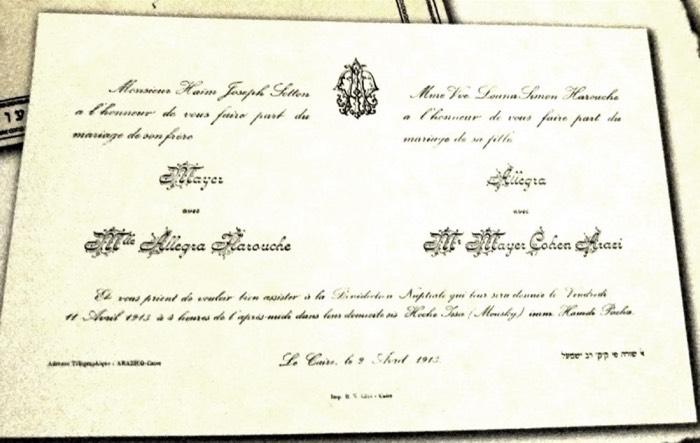 Monsieur Haim Joseph Setton
a l'honneur de vous faire part du
mariage de son frère
Mayer
avec
Mlle Allegra Harouche
Mme Vve Simon Harouche
a l'honneur de vous faire part du
mariage de sa fille
Allegra
avec
Mr Mayer Cohen Arazi
Et vous prient de vouloir bien assister à la Bénédiction Nuptiale qui leur sera donnée le Vendredi
11 Avril 1913 à 4 heures de l'après-midi dans leur domicile sis Hoche Issa (Mousky) imm. Hamdi Pacha.
Adresse Télégraphique : ARAZICO-Caire
Le Caire, le 2 Avril 1913
Imp. Caire